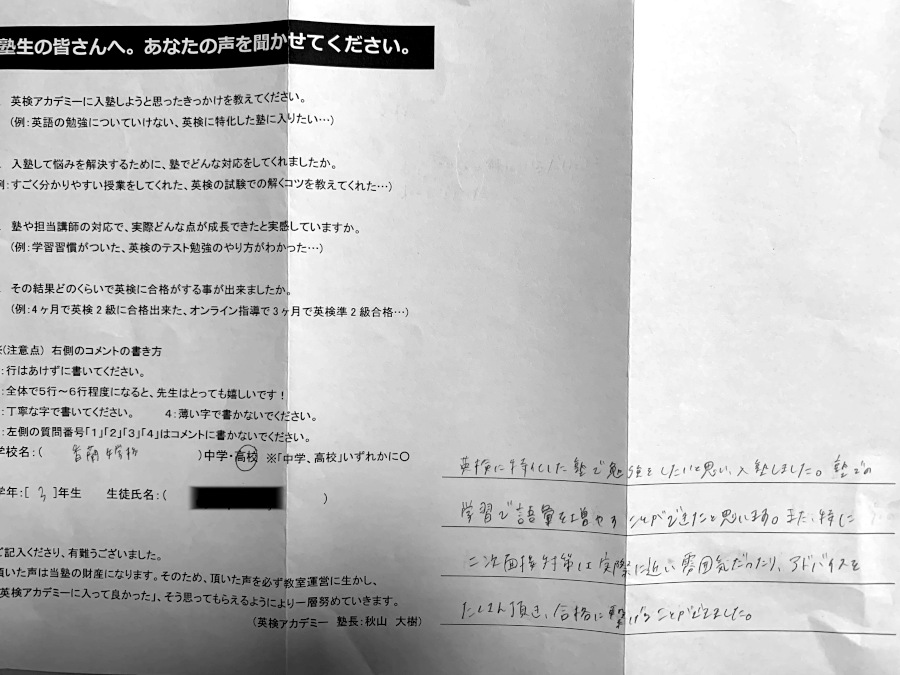 塾生の皆さんへ。あなたの声を聞かせてください。
英検アカデミーに入塾しようと思ったきっかけを教えてください。
(例:英語の勉強についていけない、英検に特化した塾に入りたい…)
入塾して悩みを解決するために、塾でどんな対応をしてくれましたか。
例:すごく分かりやすい授業をしてくれた、英検の試験での解くコツを教えてくれた…)
塾や担当講師の対応で、実際どんな点が成長できたと実感していますか。
(例:学習習慣がついた、英検のテスト勉強のやり方がわかった…)
その結果どのくらいで英検に合格がする事が出来ましたか。
(例:4ヶ月で英検2級に合格出来た、オンライン指導で3ヶ月で英検準2級合格…)
※(注意点) 右側のコメントの書き方
:行はあけずに書いてください。
:全体で5行～6行程度になると、先生はとっても嬉しいです!
:丁寧な字で書いてください。 4:薄い字で書かないでください。
:左側の質問番号「1」「2」「3」「4」はコメントに書かないでください。
学校名:( 香蘭女学校 )中学・高校 ※「中学、高校」いずれかに〇
学年:[ 3 ]年生 生徒氏名:( )
ご記入くださり、有難うございました。
頂いた声は当塾の財産になります。そのため、頂いた声を必ず教室運営に生かし、
英検アカデミーに入って良かった」、そう思ってもらえるようにより一層努めていきます。
(英検アカデミー 塾長:秋山 大樹)
英検に特化した塾で勉強をしたいと思い、入塾しました。塾での
学習で語彙を増やすことができたと思います。また、特に
二次面接対策は実際に近い雰囲気だったり、アドバイスを
たくさん頂き、合格に繋げることができました。